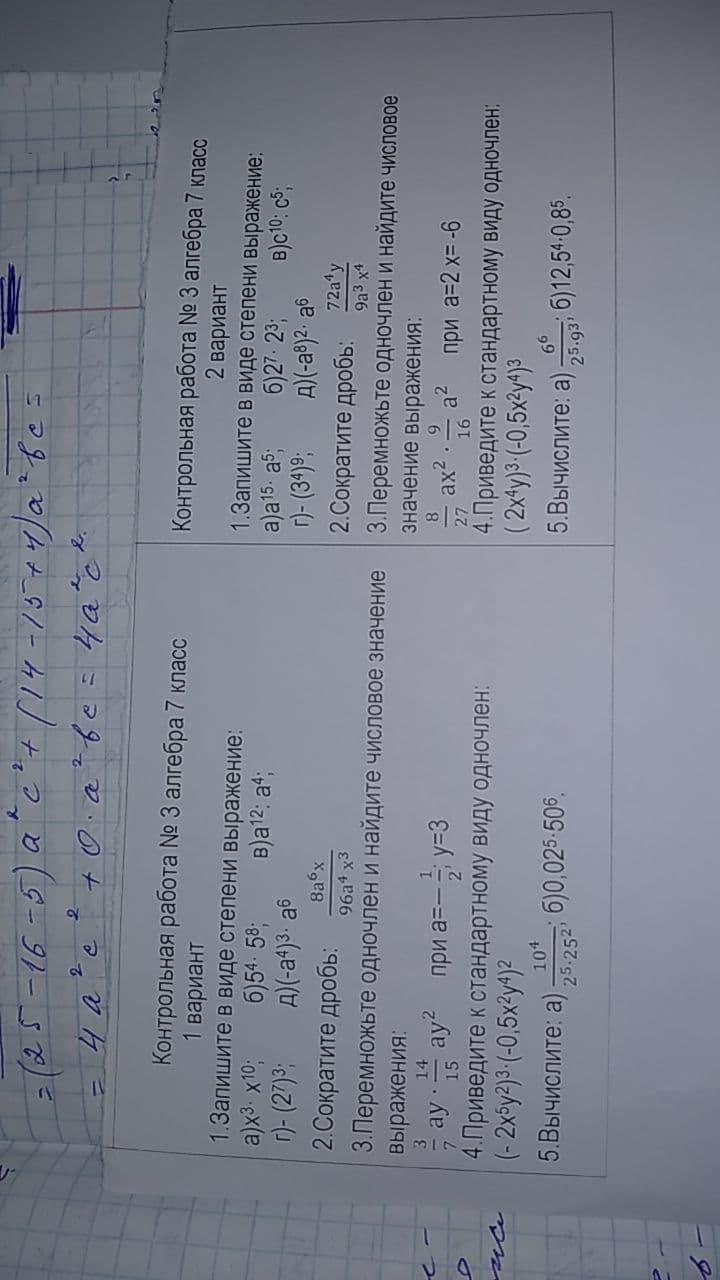 = (25 - 16 - 5) a² c² + (14 - 15 + 1) a² b c =
= 4 a² c² + 0 · a² b c = 4 a² c².
Контрольная работа № 3 алгебра 7 класс
1 вариант
1.Запишите в виде степени выражение:
а)x³· x¹⁰; б)5⁴· 5⁸; в)a¹²: a⁴;
г)- (2⁷)³; д)(-a⁴)³· a⁶
2.Сократите дробь: 8a⁶x / 96a⁴ x³
3.Перемножьте одночлен и найдите числовое значение
выражения:
3/7 ay · 14/15 ay² при a=− 1/2; y=3
4.Приведите к стандартному виду одночлен:
(- 2x⁵y²)³·(-0,5x²y⁴)²
5.Вычислите: а) 10⁴ / 2⁵·25²; б)0,02⁵·50⁶.
Контрольная работа № 3 алгебра 7 класс
2 вариант
1.Запишите в виде степени выражение:
а)a¹⁵· a⁵; б)2⁷· 2³; в)c¹⁰: c⁵;
г)- (3⁴)⁹; д)(-a⁸)²· a⁶
2.Сократите дробь: 72a⁴y / 9a³ x⁴
3.Перемножьте одночлен и найдите числовое
значение выражения:
8/27 ax² · 9/16 a² при a=2 x= -6
4.Приведите к стандартному виду одночлен:
( 2x⁴y)³·(-0,5x²y⁴)³
5.Вычислите: а) 6⁶ / 2⁵·9³; б)12,5⁴·0,8⁵.